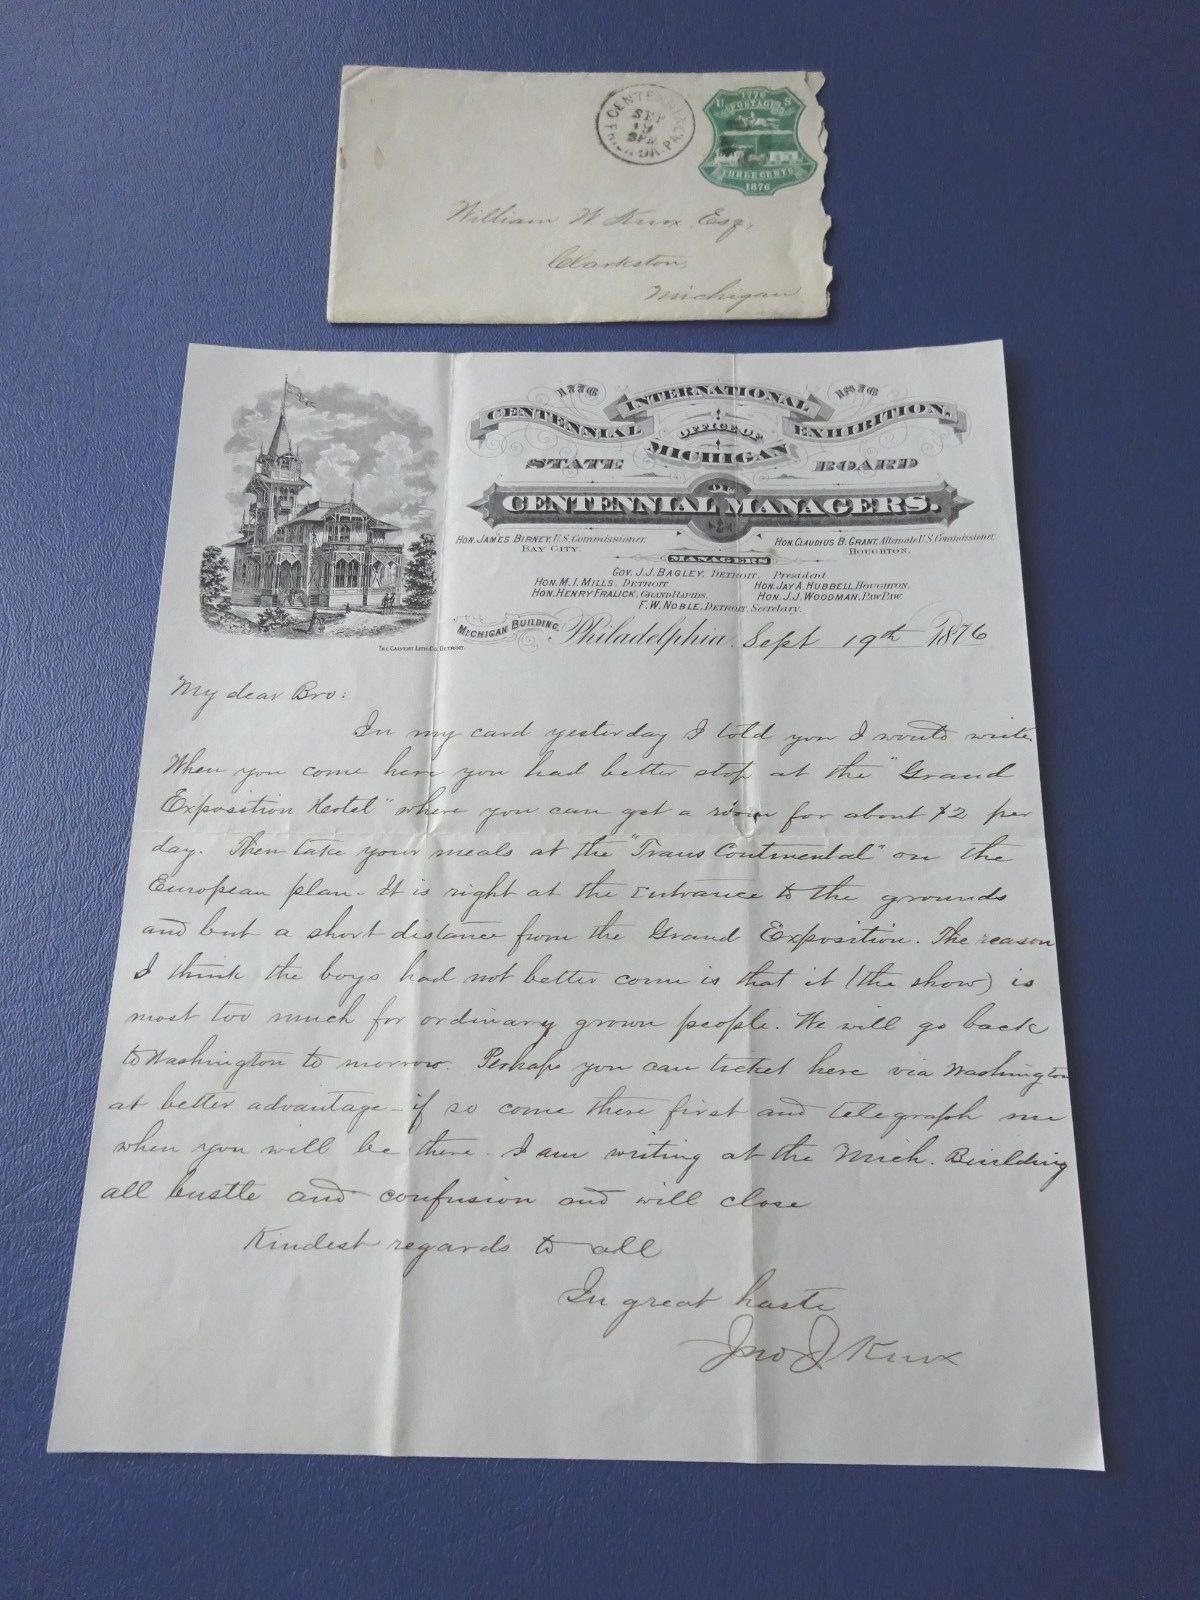 CENTENNIAL
SEP
19
3PM
PHILA'DA. PA.
1776
U S
POSTAGE
THREE CENTS
1876
William W Knox Esq,
Clarkston,
Michigan
1776 INTERNATIONAL 1876
CENTENNIAL EXHIBITION.
OFFICE OF
MICHIGAN
STATE BOARD
OF
CENTENNIAL MANAGERS.
HON. JAMES BIRNEY, U.S. Commissioner, HON. CLAUDIUS B. GRANT, Alternate U.S. Commissioner,
BAY CITY. HOUGHTON.
MANAGERS
GOV. J. J. BAGLEY, DETROIT, President
HON. M. I. MILLS, DETROIT. HON. JAY A. HUBBELL, HOUGHTON.
HON. HENRY FRALICK, GRAND RAPIDS. HON. J. J. WOODMAN, PAW PAW.
F. W. NOBLE, DETROIT, Secretary.
MICHIGAN BUILDING, Philadelphia, Sept 19th 1876
THE CALVERT LITH. CO. DETROIT.
My dear Bro:
In my card yesterday I told you I would write.
When you come here you had better stop at the "Grand
Exposition Hotel" where you can get a room for about $2 per
day. Then take your meals at the "Trans Continental" on the
European plan - It is right at the Entrance to the grounds
and but a short distance from the Grand Exposition. The reason
I think the boys had not better come is that it (the show) is
most too much for ordinary grown people. We will go back
to Washington to morrow. Perhaps you can ticket here via Washington
at better advantage - if so come there first and telegraph me
when you will be there - I am writing at the Mich. Building
all bustle and confusion and will close
Kindest regards to all
In great haste
Jno J Knox